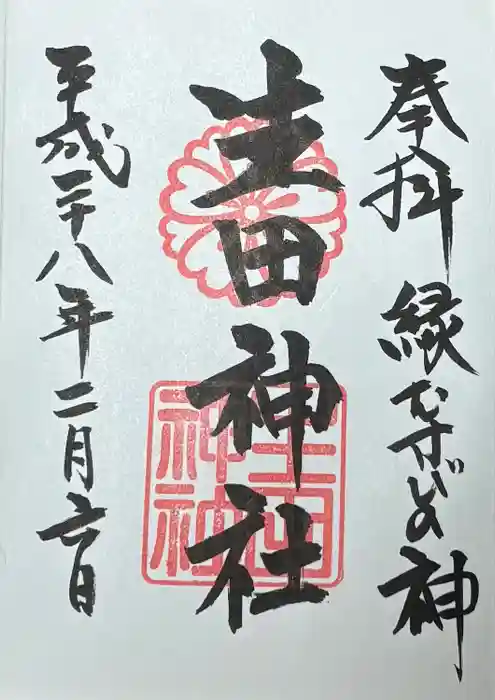 奉拝 縁むすびの神
生田神社
平成二十八年二月六日
生田
神社